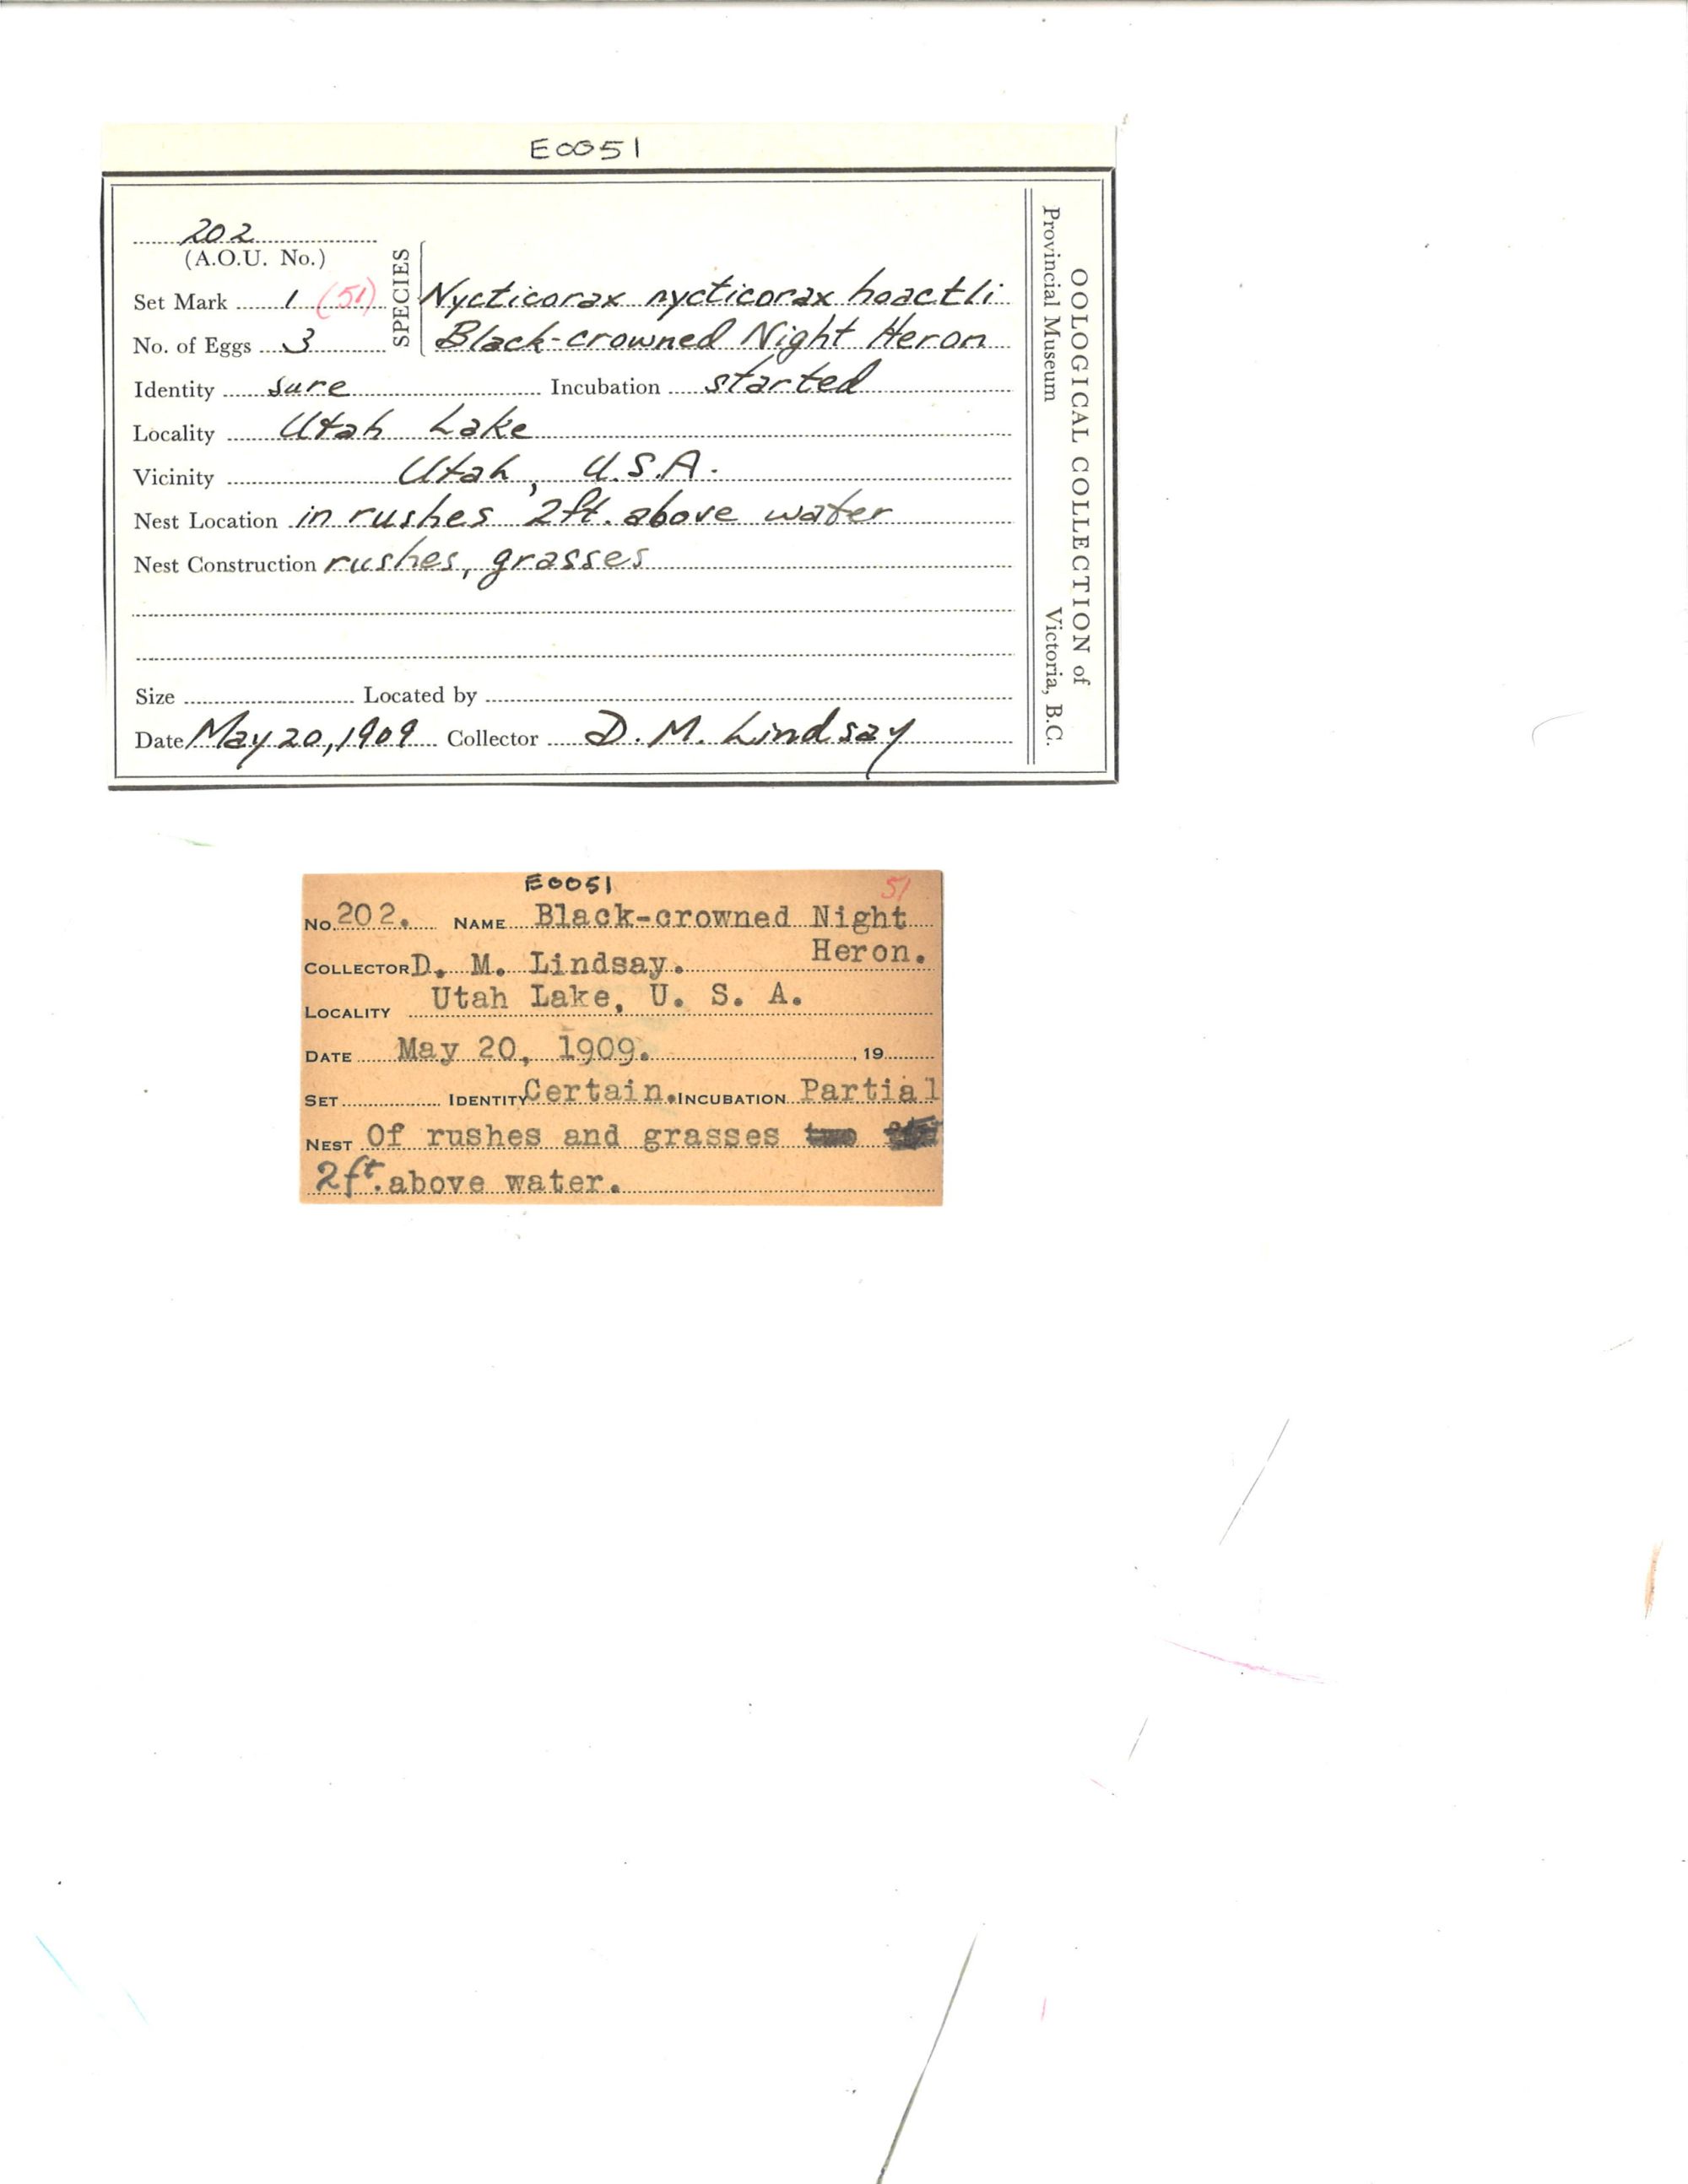 E0051
202
(A.O.U. No.)
SPECIES
Set Mark 1 (51) Nycticorax nycticorax hoactli
No. of Eggs 3 Black-crowned Night Heron
Identity sure Incubation started
Locality Utah Lake
Vicinity Utah, U.S.A.
Nest Location in rushes 2ft. above water
Nest Construction rushes, grasses
Size Located by
Date May 20, 1909 Collector D. M. Lindsay
OOLOGICAL COLLECTION of
Provincial Museum Victoria, B.C.
E0051 51
No. 202. NAME Black-crowned Night
Heron.
COLLECTOR D. M. Lindsay.
LOCALITY Utah Lake, U. S. A.
DATE May 20, 1909. , 19
SET IDENTITY Certain. INCUBATION Partial
NEST Of rushes and grasses two
2ft. above water.